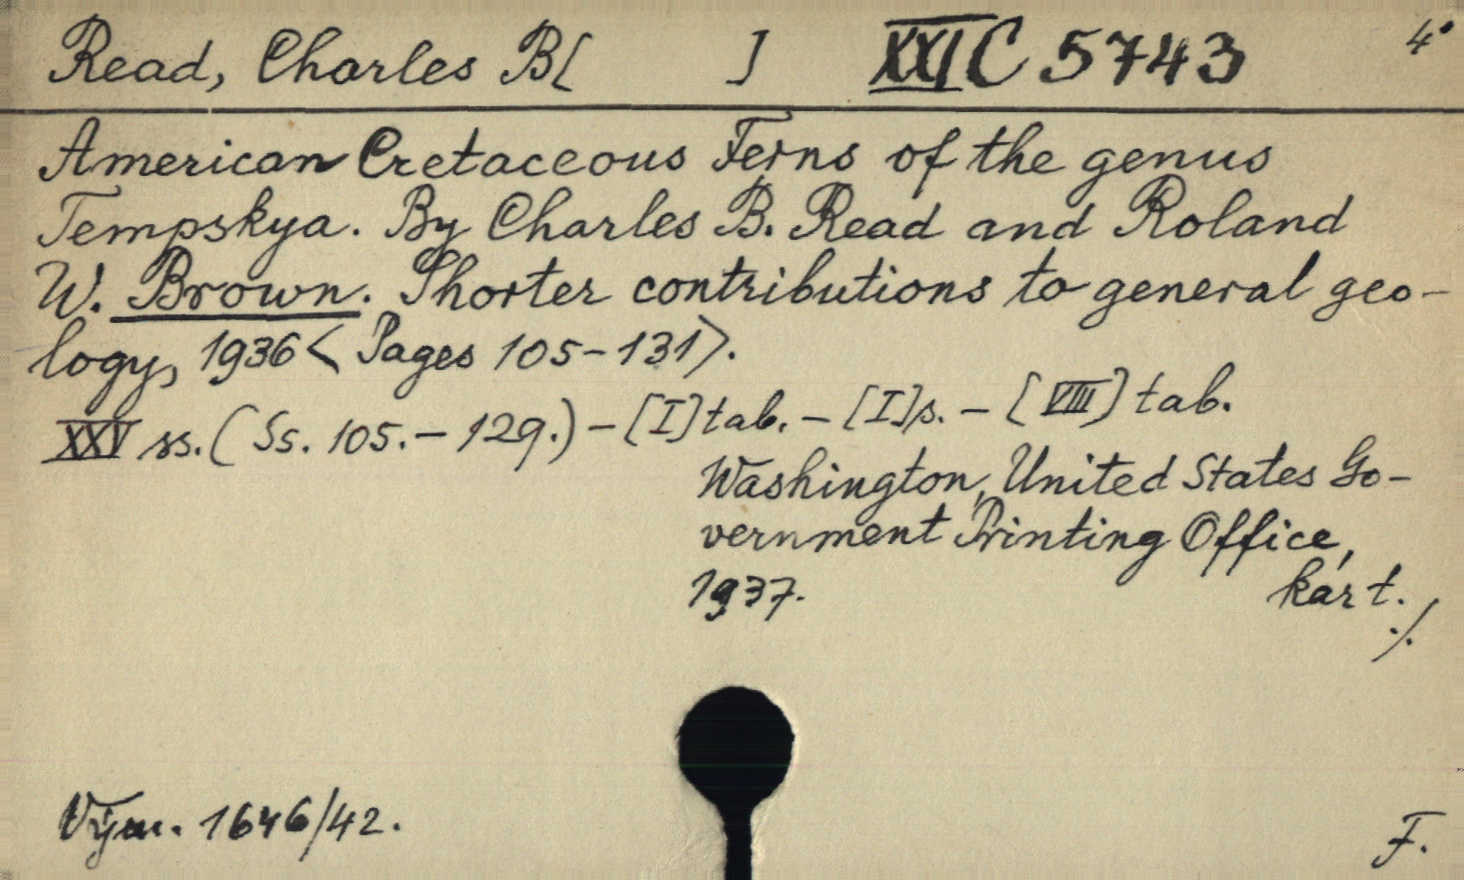 Read, Charles B[ ] XXI C 5743 4°
American Cretaceous Ferns of the genus
Tempskya. By Charles B. Read and Roland
W. Brown. Shorter contributions to general geo-
logy, 1936 < Pages 105-131>.
XXV ss. (Ss. 105.-129.) - [I] tab. - [I] s. - [VIII] tab.
Washington, United States Go-
vernment Printing Office,
1937. kárt.
./.
Vým. 1646/42.
F.